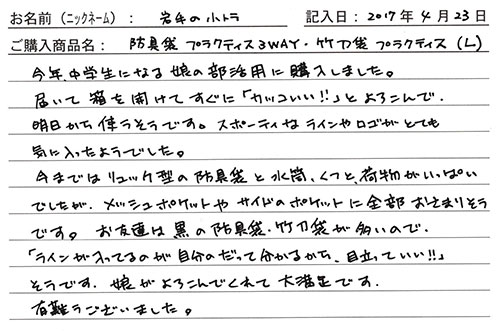 お名前(ニックネーム): 岩手の小トラ 記入日: 2017年4月23日
ご購入商品名: 防具袋 プラクティス3WAY・竹刀袋 プラクティス(L)
今年、中学生になる娘の部活用に購入しました。
届いて箱を開けてすぐに「カッコいい!!」とよろこんで、
明日から使うそうです。スポーティなラインやロゴがとても
気に入ったようでした。
今まではリュック型の防具袋と水筒、くつと、荷物がいっぱい
でしたが、メッシュポケットやサイドのポケットに全部おさまりそう
です。 お友達は黒の防具袋・竹刀袋が多いので、
「ラインが入ってるのが自分のだって分かるから、目立っていい!!」
そうです。娘がよろこんでくれて大満足です。
有難うございました。